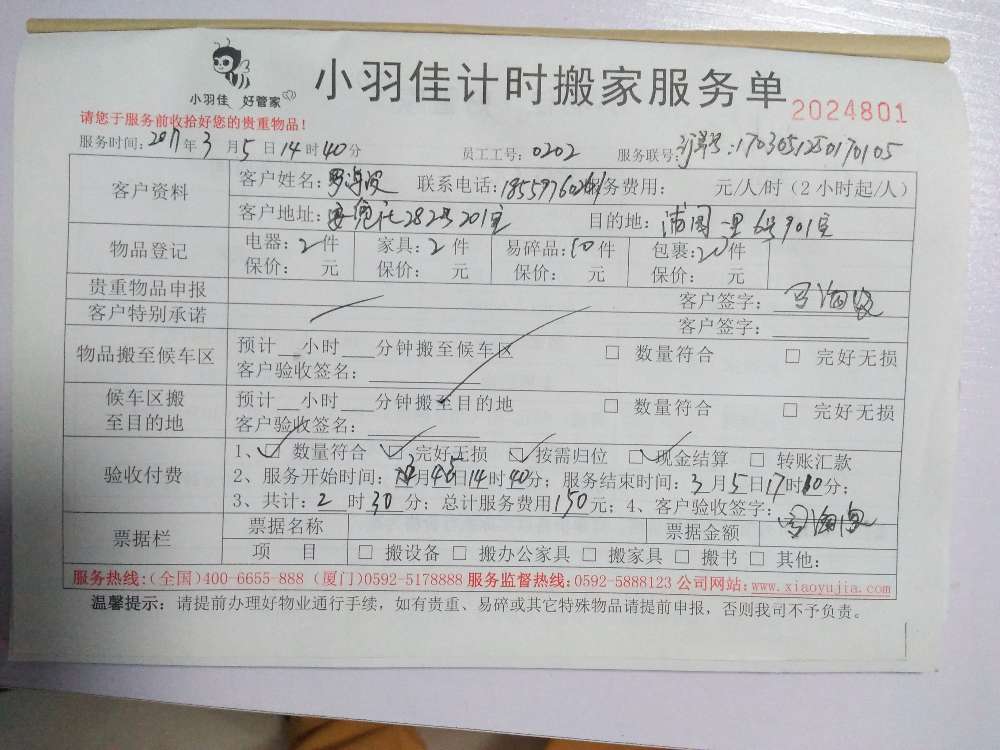 小羽佳 好管家
小羽佳计时搬家服务单
2024801
请您于服务前收拾好您的贵重物品!
服务时间: 2017年3月5日14时40分 员工工号: 0202 服务联号: 订单号:1703051250170105
客户资料 客户姓名: 联系电话: 服务费用: 元/人/时 (2小时起/人)
客户地址: 282号201室 目的地: 莆园一里6号901室
物品登记 电器: 2件 家具: 2件 易碎品: 10件 包裹: 20件
保价: 元 保价: 元 保价: 元 保价: 元
贵重物品申报 客户签字:
客户特别承诺 客户签字:
物品搬至候车区 预计__小时___分钟搬至候车区 □ 数量符合 □ 完好无损
客户验收签名:
候车区搬至目的地 预计__小时___分钟搬至目的地 □ 数量符合 □ 完好无损
客户验收签名:
验收付费 1、☑ 数量符合 ☑ 完好无损 ☑ 按需归位 ☑ 现金结算 □ 转账汇款
2、服务开始时间: 月 日14时40分; 服务结束时间: 3月5日17时10分;
3、共计: 2时30分; 总计服务费用150元; 4、客户验收签字:
票据栏 票据名称 票据金额
项 目 □ 搬设备 □ 搬办公家具 □ 搬家具 □ 搬书 □ 其他:
服务热线:(全国)400-6655-888 (厦门)0592-5178888 服务监督热线:0592-5888123 公司网站:www.xiaoyujia.com
温馨提示: 请提前办理好物业通行手续, 如有贵重、易碎或其它特殊物品请提前申报, 否则我司不予负责。